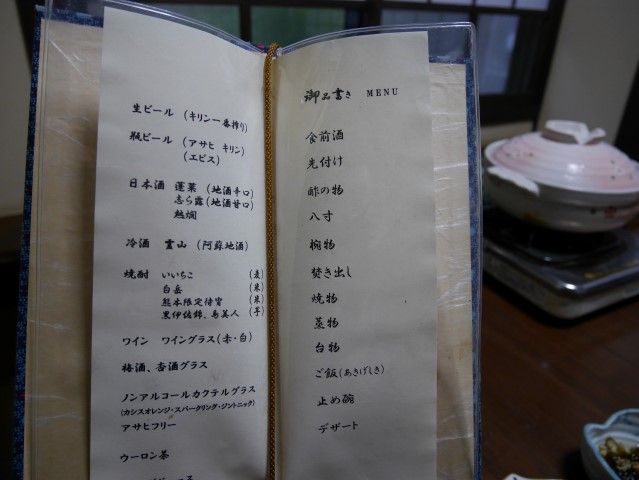 生ビール (キリン一番搾り)
瓶ビール (アサヒ キリン)
(エビス)
日本酒 蓬莱 (地酒辛口)
志ら露(地酒甘口)
熱燗
冷酒 霊山 (阿蘇地酒)
焼酎 いいちこ (麦)
白岳 (米)
熊本限定待宵 (米)
黒伊佐錦、島美人 (芋)
ワイン ワイングラス(赤・白)
梅酒、杏酒グラス
ノンアルコールカクテルグラス
(カシスオレンジ・スパークリング・ジントニック)
アサヒフリー
ウーロン茶
御品書き MENU
食前酒
先付け
酢の物
八寸
椀物
焚き出し
焼物
蒸物
台物
ご飯(あきげしき)
止め碗
デザート